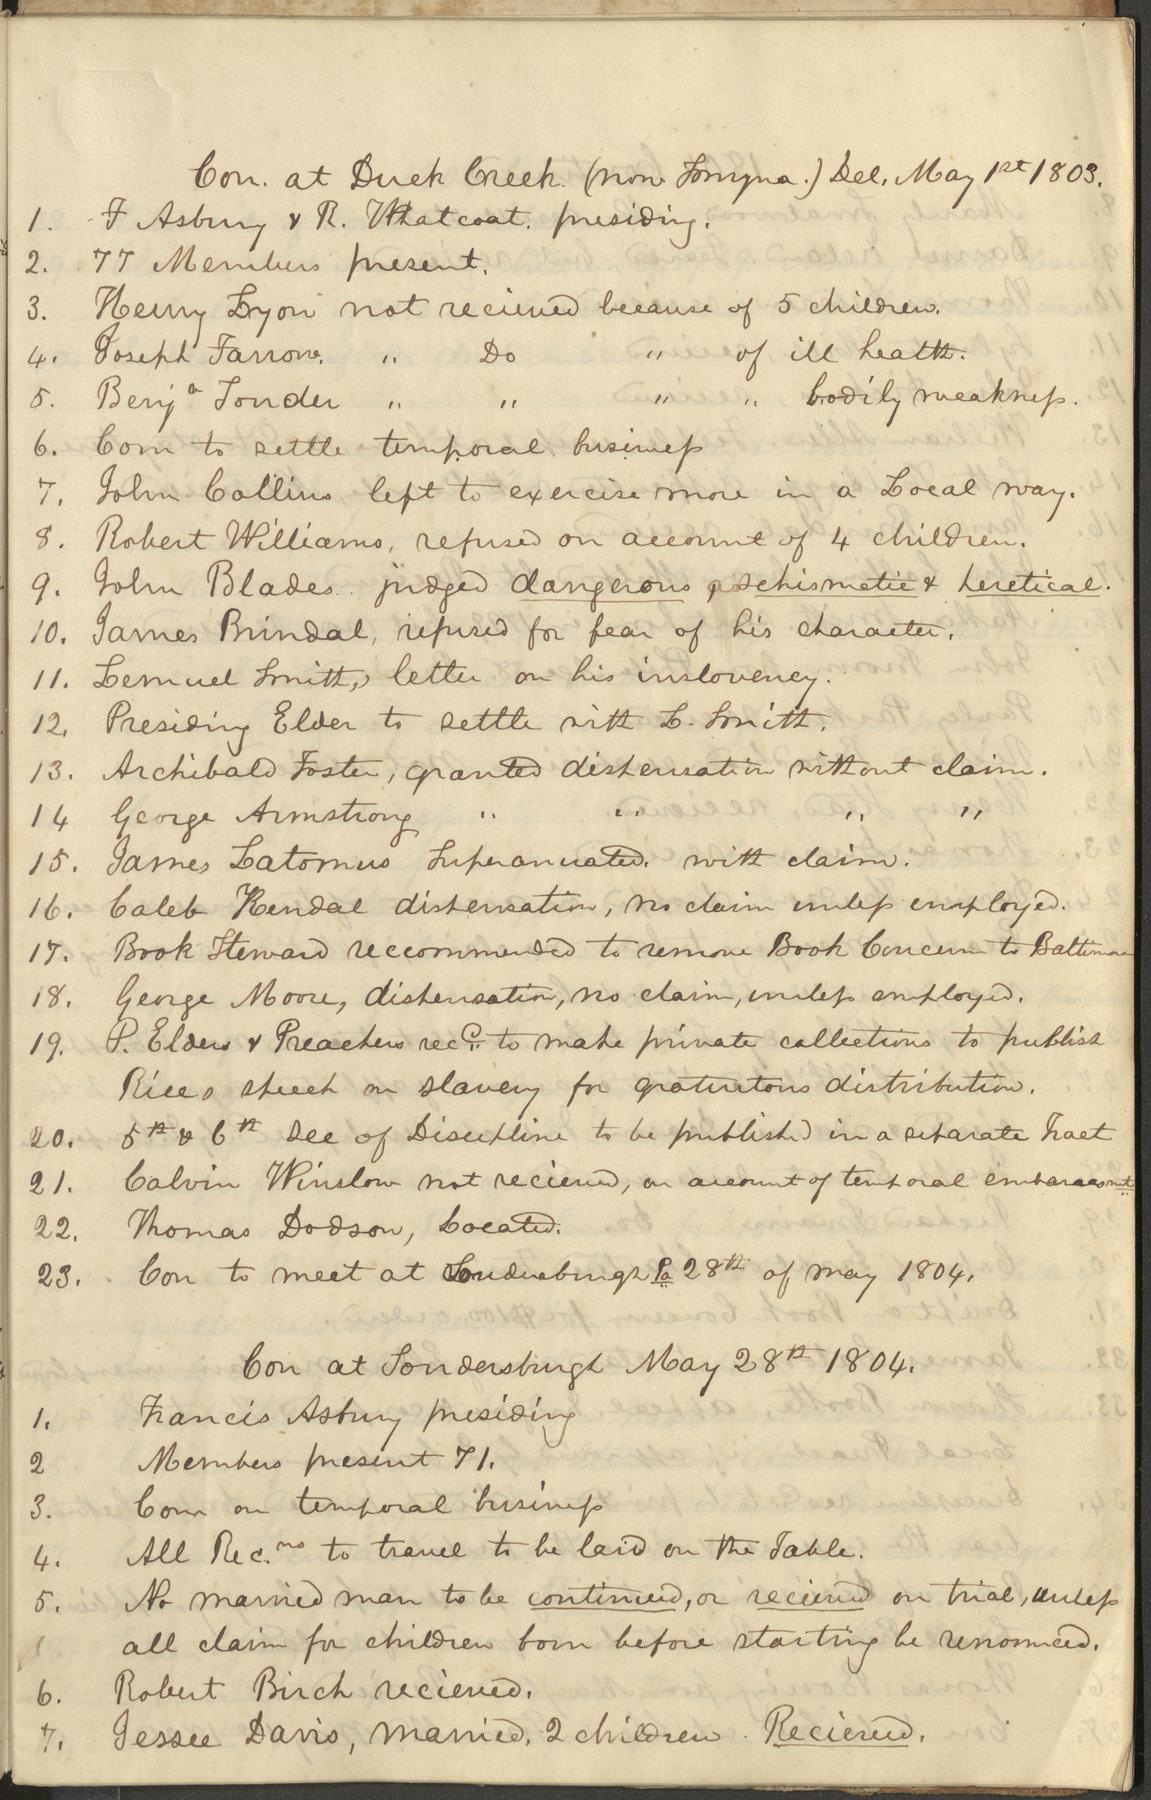 Con. at Duck Creek. (now Smyrna.) Del. May 1st 1803.
1. F Asbury & R. Whatcoat. presiding.
2. 77 Members present.
3. Henry Lyon not recieved because of 5 children.
4. Joseph Farrow. " Do " of ill health.
5. Benja Souder " " " " bodily weakness.
6. Com to settle temporal business
7. John Collins left to exercise more in a Local way.
8. Robert Williams, refused on account of 4 children.
9. John Blades. judged dangerous schismatic & heretical.
10. James Brindal, refused for fear of his character.
11. Lemuel Smith, letter on his inslovency.
12. Presiding Elder to settle with L. Smith.
13. Archibald Foster, granted dispensation without claim.
14 George Armstrong " " " "
15. James Latomus Superanuated. with claim.
16. Caleb Kendal dispensation, no claim unless employed.
17. Book Steward reccommended to remove Book Concern to Baltimore
18. George Moore, dispensation, no claim, unless employed.
19. P. Elders & Preachers recd. to make private collections to publish
Rices speech on slavery for gratuitous distribution.
20. 5th & 6th Sec of Discipline to be published in a separate Tract
21. Calvin Winslow not recieved, on account of temporal embarassmt
22. Thomas Dodson, Located.
23. Con to meet at Soudersburgh Pa 28th of may 1804.
Con at Soudersburgh May 28th 1804.
1. Francis Asbury presiding
2 Members present 71.
3. Com on temporal business
4. All Rec.ns to travel to be laid on the Table.
5. No married man to be continued, or recieved on trial, unless
all claim for children born before starting be renounced.
6. Robert Birch recieved.
7. Jessee Davis, married. 2 children. Recieved.